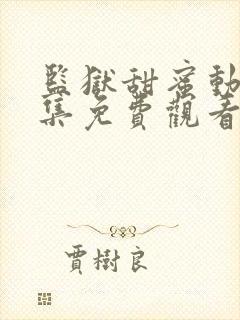 監獄甜蜜動
集免費觀看
賈樹良